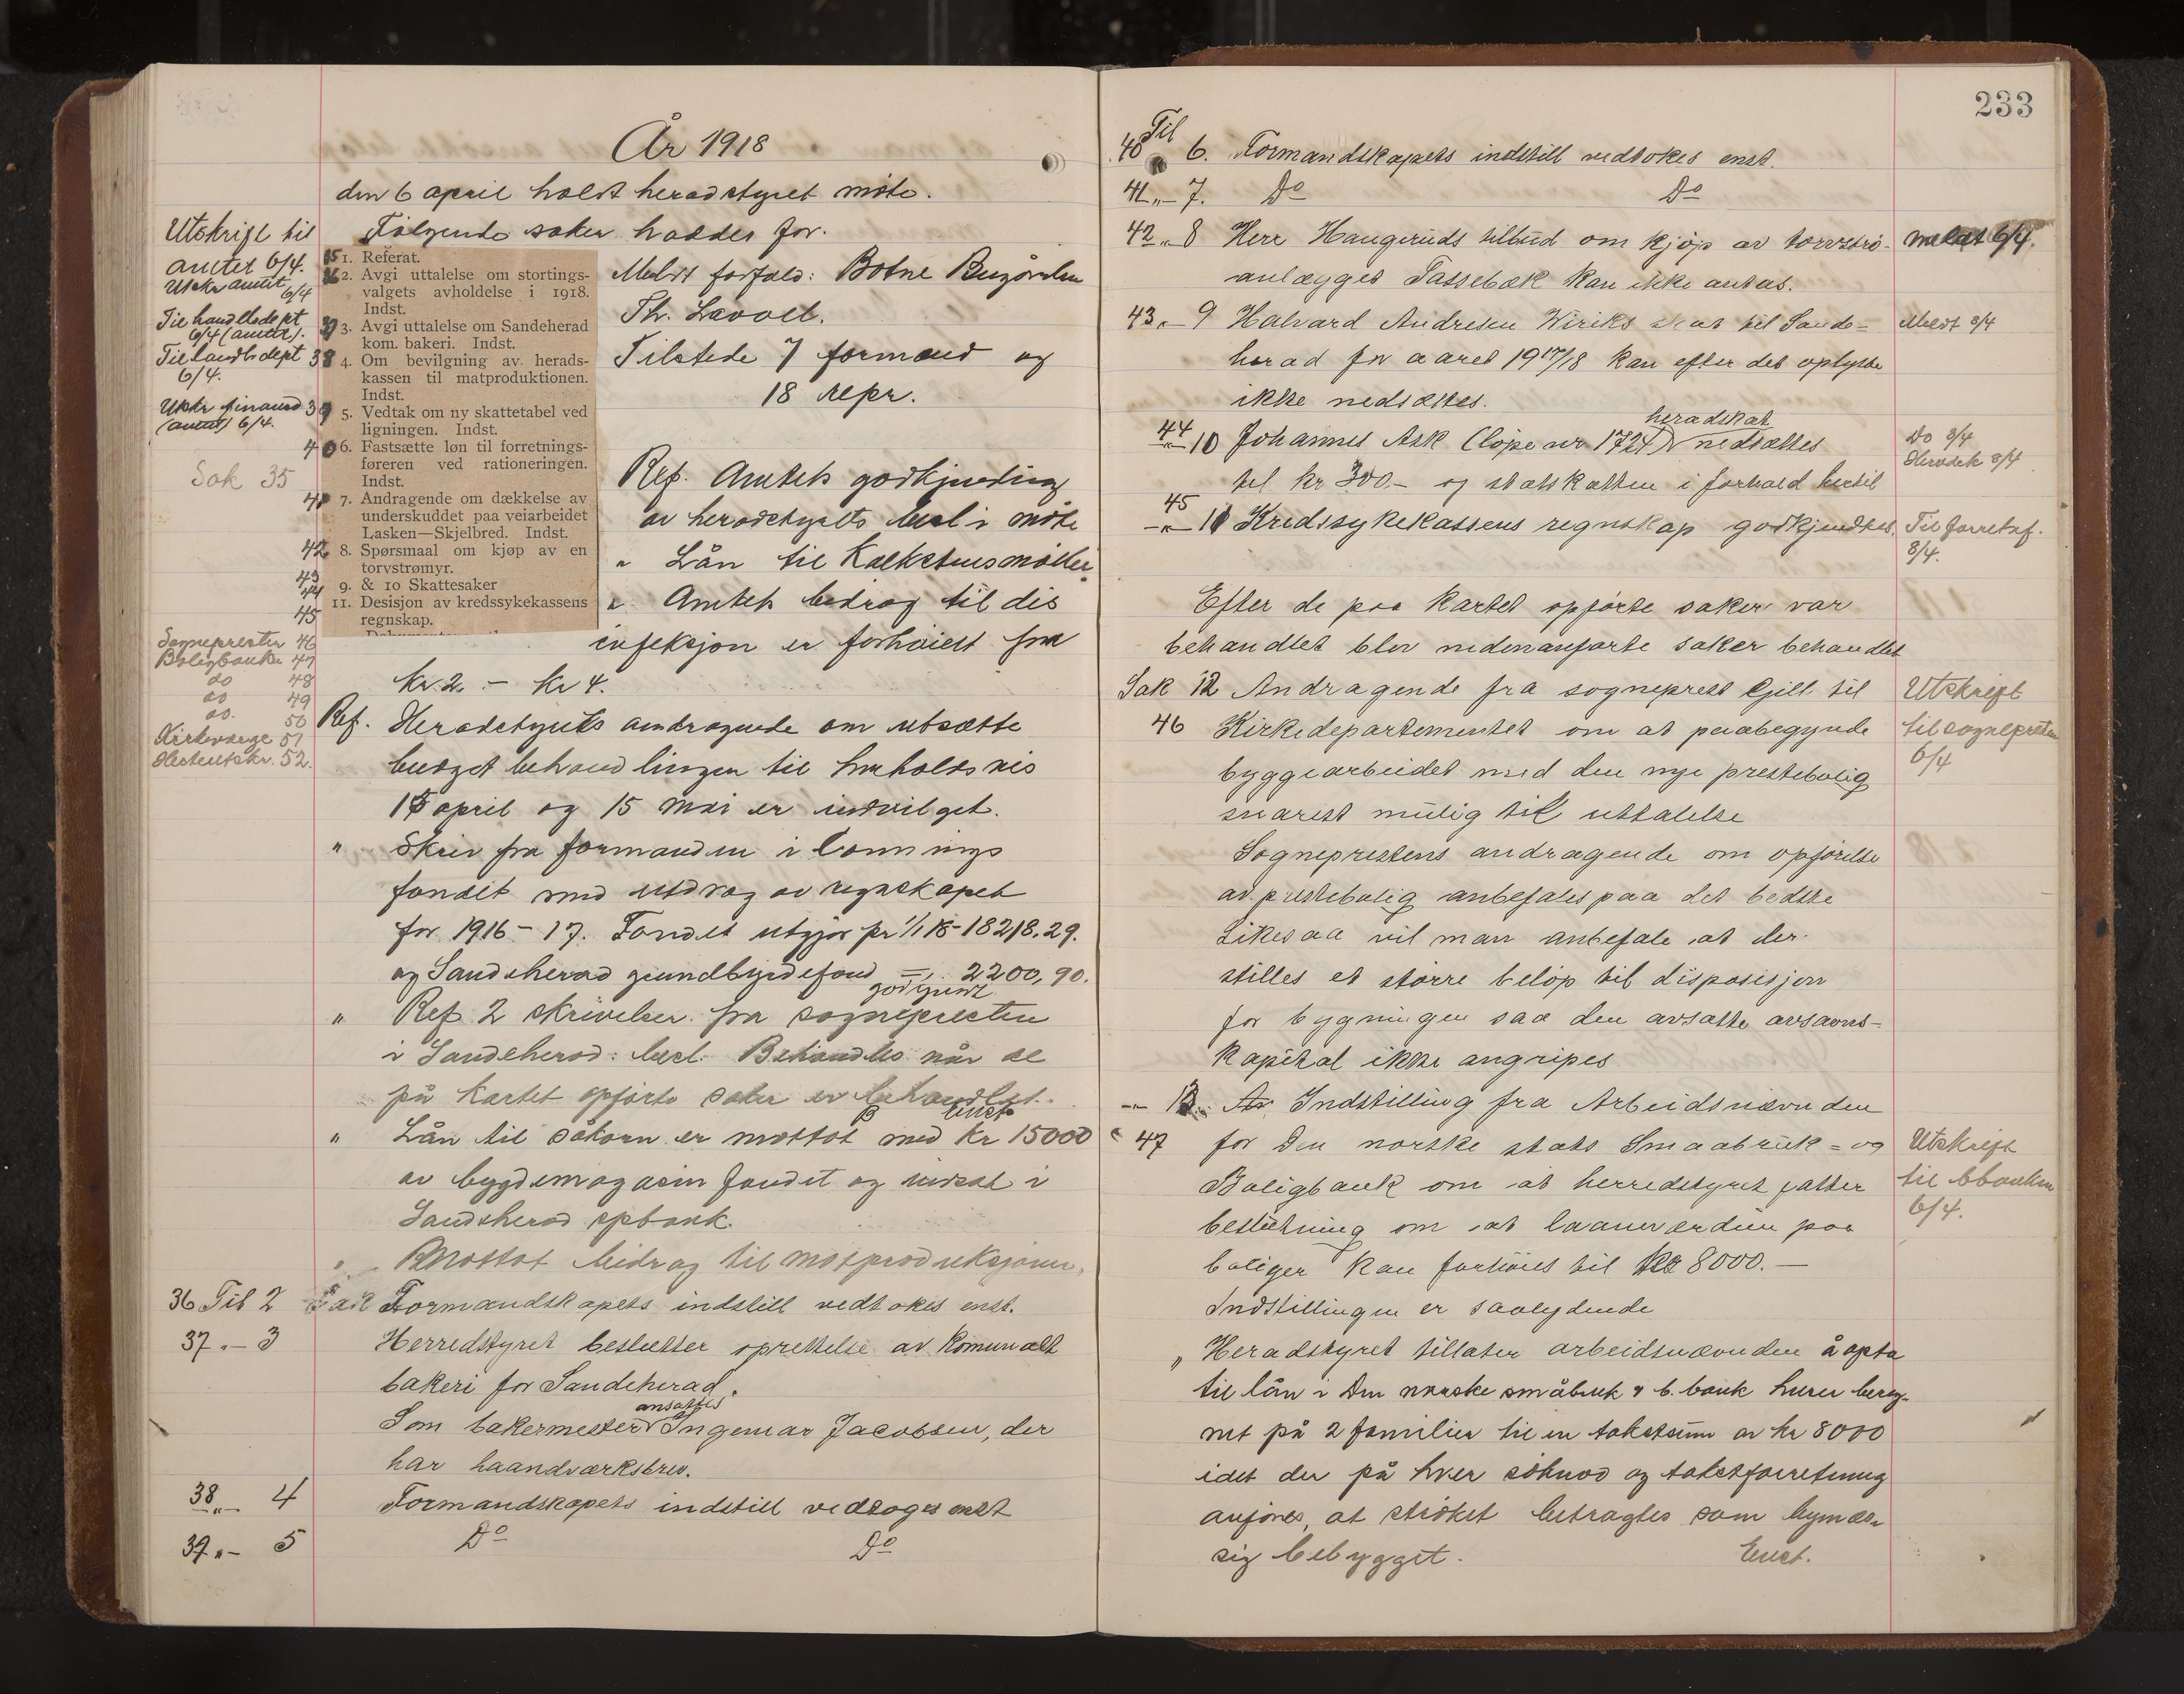 År 1918
den 6 april holdt heradstyret møte.
Følgende saker hades for.
Utskrift til
amtet 6/4.
Utskr amtet
6/4
Til handlsdept
6/4 (amtet).
Til landbr dept 38
6/4.
Utskr finansd 39
(amtet) 6/4.
40
Sak 35
41
42
43
44
45
Sogneprestn 46
Boligbanken 47
do 48
do 49
do. 50
Kirkeverge 51
Herredskr. 52.
35 1. Referat.
36 2. Avgi uttalelse om stortings-
valgets avholdelse i 1918.
Indst.
37 3. Avgi uttalelse om Sandeherad
kom. bakeri. Indst.
4. Om bevilgning av herads-
kassen til matproduktionen.
Indst.
5. Vedtak om ny skattetabel ved
ligningen. Indst.
6. Fastsætte løn til forretnings-
føreren ved rationeringen.
Indst.
7. Andragende om dækkelse av
underskuddet paa veiarbeidet
Lasken—Skjelbred. Indst.
8. Spørsmaal om kjøp av en
torvstrømyr.
9. & 10 Skattesaker
11. Desisjon av kredssykekassens
regnskap.
Meldt forfald: Botne
Th. Lavoll.
Tilstede 7 formænd og
18 repr.
Ref. Amtets godkjending
av heradstyrets besl i møte
" Lån til Kalkstensmøller
" Amtets bidrag til dis
infeksjon er forhøiet fra
kr. 2. - kr 4.
Ref. Heradstyrets andragende om utsætte
budget behandlingen til henholdsvis
15 april og 15 mai er indvilget.
" Skriv fra formanden i
fondet med utdrag av regnskapet
for 1916-17. Fondet utgjør pr 1/1 18 - 18218.29.
og Sandeherad grundbyrdefond =,, 2200,90.
godkjendt
" Ref. 2 skrivelser fra sognepresten
i Sandeherad: besl. Behandles når de
på kartet opførte saker er behandlet.
Enst.
" Lån til såkorn er mottat med kr 15000
av bygdemagasin fondet og indsat i
Sandeherad spbank.
" Mottat bidrag til matproduksjonen.
36 Til 2 Sak Formandskapets indstill vedtokes enst.
37 .- 3 Herredstyret beslutter oprettelse av komunalt
bakeri for Sandeherad.
ansættes
Som bakermester Ingemar Jacobsen, der
har haandværksbrev.
38 „- 4 Formandskapets indstill vedtoges enst
39 „- 5 Do Do
233
Til
40 6. Formandskapets indstill vedtokes enst.
41 „- 7. Do Do
42 „ 8 Herr Haugeruds tilbud om kjøp av torvstrø- meldt 6/4.
anlægget Tassebæk kan ikke antas.
43 „- 9 Halvard Andresen Wiriks skat til Sande= Meldt 8/4
herad for aaret 1917/18 kan efter det oplyste
ikke nedsættes.
heradskat
44 „- 10 Johannes Ask (løpe nr 1724) nedsættes Do 8/4
Herredsk 8/4
til kr 300.- og statskatten i forhold hertil
45 -„- 11 Kredssykekassens regnskap godkjendtes. Til forretnf.
8/4.
Efter de paa kartet opførte saker var
behandlet blev nedenanførte saker behandlet
Sak 12 Andragende fra sogneprest Gjill til Utskrift
46 Kirkedepartementet om at paabegynde til sognepresten
byggearbeidet med den nye prestebolig 6/4
snarest mulig til uttalelse
Sogneprestens andragende om opførelse
av prestebolig anbefales paa det bedste
Likesaa vil man anbefale at der
stilles et større beløp til disposisjon
for bygningen saa den avsatte avsavns-
kapital ikke angripes
-„- 13. Indstilling fra Arbeidsnævnden
" 47 for Den norske stats Smaabruk = og Utskrift
Boligbank om at herredstyret fatter til bbanken
beslutning om at laaneværdien paa 6/4.
boliger kan forhøies til kr 8000.-
Indstillingen er saalydende
„ Heradstyret tillater arbeidsnævnden å opta
til lån i Den norske småbruk & b. bank huser bereg-
net på 2 familier til en takstsum av kr 8000
idet der på hver søknad og takstforretning
anføres, at strøket betragtes som bymæs-
sig bebygget. Enst.